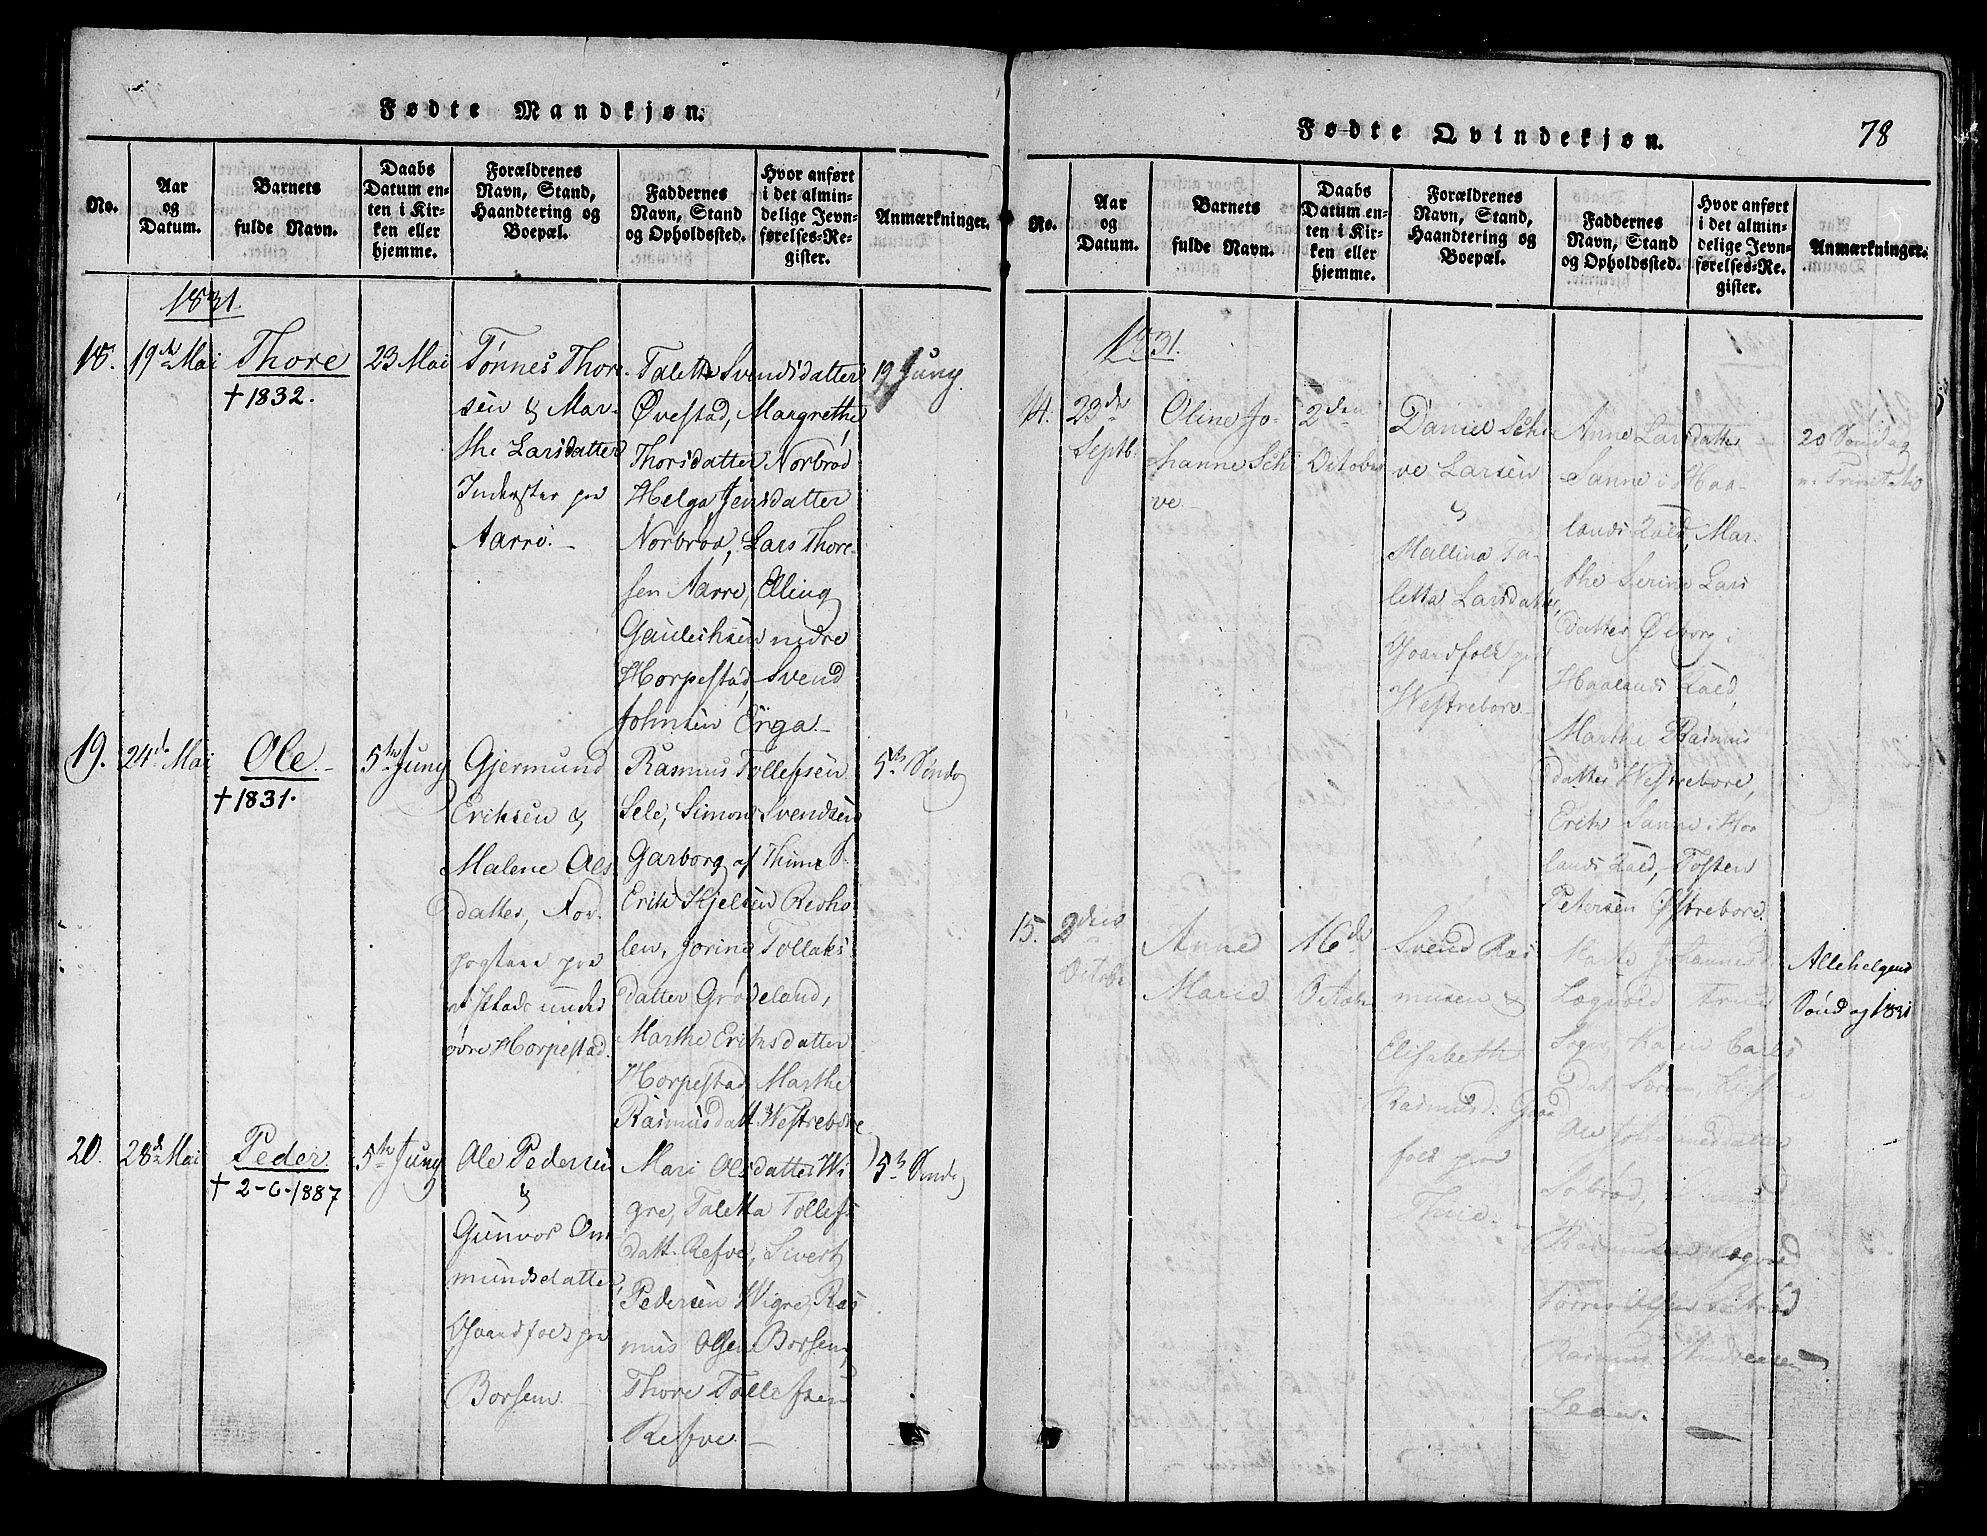 Fødte Mandkjøn.
No.
Aar
og
Datum.
Barnets
fulde Navn.
Daabs
Datum en-
ten i Kir-
ken eller
hjemme.
Forældrenes
Navn, Stand,
Haandtering og
Boepæl.
Faddernes
Navn, Stand
og Opholdssted.
Hvor anført
i det almin-
delige Jevn-
førelses-Re-
gister.
Anmærkninger.
1831.
18.
19de Mai
Thore
† 1832.
23 Mai
Tønnes Thor-
sen & Mar-
the Larsdatter
Inderster paa
Aarre.
Talette Svendsdatter
Øvestad, Margrethe
Thorsdatter Norbrød
Helga Jensdatter
Norbrød, Lars Thore-
sen Aarre, Elling
Gauteshsen nedre
Horpestad, Svend
Johnsen Erga
19 Juny
19.
24de Mai
Ole
† 1831.
5te Juny
Gjermund
Eriksen &
Malene Ols
datter,
øvre Horpestad.
Rasmus Tollefsen
Sele, Simon Svendsen
Garborg af Thime P.
Erik Kjelsen Reoho-
len, Joring Tollaks
datter Grødeland,
Marthe Eriksdatter
Horpestad Marthe
Rasmusdatt. Westrebøre
5te Sønda
20.
28de Mai
Peder
† 2-6-1887
5te Juny
Ole Pedersen
&
Gunvor Om
mundsdatter
Gaardfolk paa
Borsem
Mari Olsdatter Wi
gre, Taletta Tollefs
datt. Refve, Sivert
Pedersen Wigre, Ras
mus Olsen Borsem,
Thore Tollefsen
Refve
5te Sønda
Fødte Qvindekjøn.
78
No.
Aar
og
Datum.
Barnets
fulde Navn.
Daabs
Datum en-
ten i Kir-
ken eller
hjemme.
Forældrenes
Navn, Stand,
Haandtering og
Boepæl.
Faddernes
Navn, Stand
og Opholdssted.
Hvor anført
i det almin-
delige Jevn-
førelses-Re-
gister.
Anmærkninger.
1831.
14.
23de
Septb.
Oline Jo-
hanne Schi
ve
2den
October
Daniel Schi
ve Larsen
&
Mallina Ta-
letta Larsdatter,
Gaardfolk paa
Westrebore
Anne Larsdatter
Sanne i Haa-
lands Kald, Mar-
the Serine Lars
datter Øeborg i
Haalands Kald,
Marthe Rasmus
datter Westrebore,
Erik Sanne i Haa
lands Kald, Tosten
Petersen Østrebore
20 Søndag
n. Trinitatis
15.
2den
October
Anne
Marie
16de
October
Svend Ras
musen &
Elisabeth
Rasmusd. Gaard
folk paa
Thuie
Johannesd
Karen Carls
dat.
Ole Johannesdatter
Sobrød,
Tørres Olsen
Rasmus Andreasen
Allehelgens
Søndag 1831